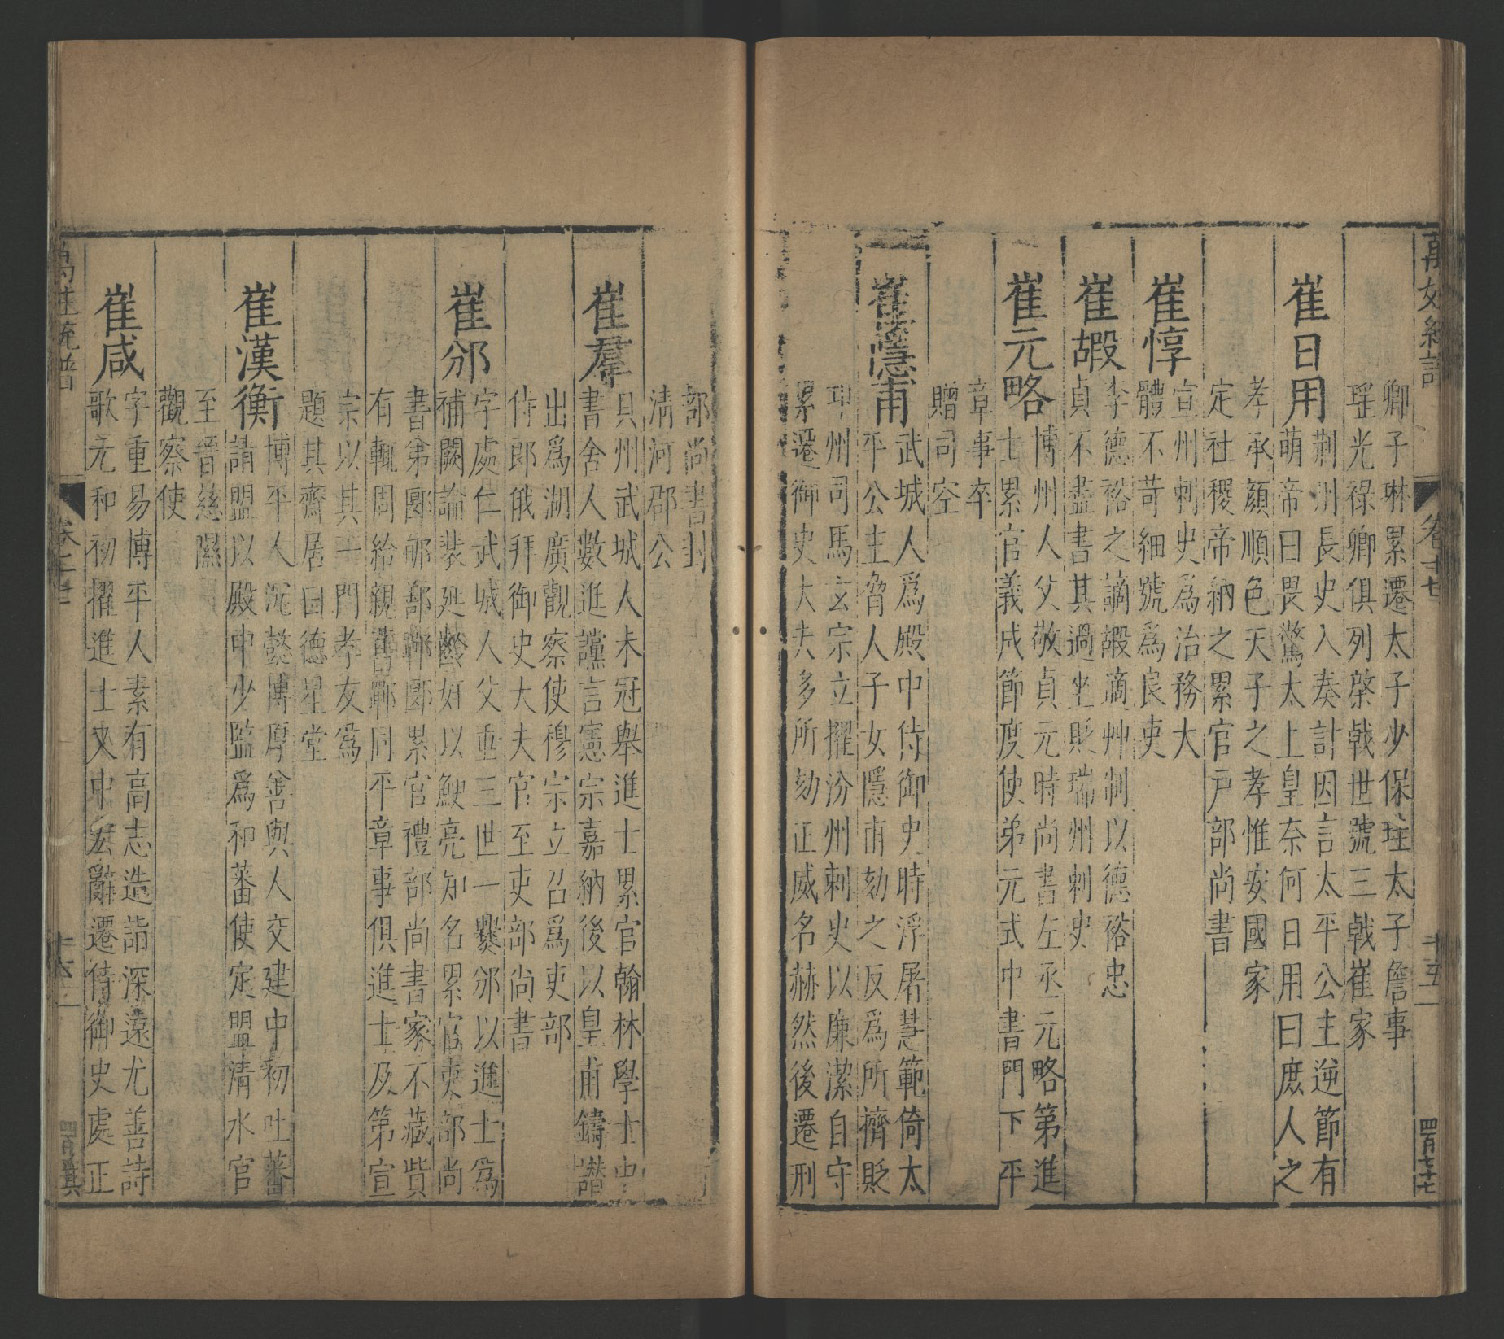 萬姓統譜
卷之十七
十五
卿子琳累遷太子少保珪太子詹事
瑤光祿卿俱列棨戟世號三戟崔家
崔日用
荆州長史入奏計因言太平公主逆節有
萌帝曰畏驚太上皇奈何日用曰庶人之
孝承顏順色天子之孝惟安國家
定社稷帝納之累官戶部尚書
崔惇
宣州刺史為治務大
體不苛細號爲良吏
崔嘏
李德裕之謫嘏適艸制以德裕忠
貞不盡書其過坐貶瑞州刺史
崔元略
博州人父敬貞元時尚書左丞元略第進
士累官義成節度使弟元式中書門下平
章事卒
贈司空
崔隱甫
武城人爲殿中侍御史時浮屠慧範倚太
平公主脅人子女隱甫劾之反爲所擠貶
邛州司馬玄宗立擢汾州刺史以廉潔自守
累遷御史大夫多所劾正威名赫然後遷刑
部尚書封
清河郡公
崔羣
貝州武城人未冠舉進士累官翰林學士中
書舍人數進讜言憲宗嘉納後以皇甫鎛譖
出爲湖廣觀察使穆宗立召爲吏部
侍郎俄拜御史大夫官至吏部尚書
崔邠
字處仁武城人父垂三世一爨邠以進士爲
補闕論裴延齡姧以鯁亮知名累官吏部尚
書弟酆郇鄯鄲郾累官禮部尚書家不藏貲
有輒周給親舊鄲同平章事俱進士及第宣
宗以其一門孝友爲
題其齋居曰德星堂
崔漢衡
博平人沉懿博厚善與人交建中初吐蕃
請盟以殿中少監爲和蕃使定盟清水官
至晉慈隰
觀察使
崔咸
字重易博平人素有高志造詣深遠尤善詩
歌元和初擢進士又中宏辭遷侍御史處正
萬姓統譜
卷之十七
十六